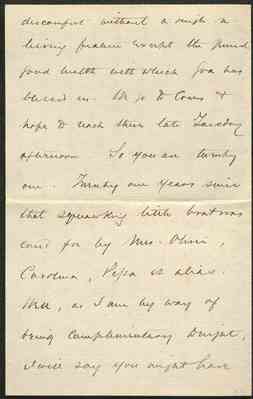 discomfort without a single
living feature except the
good health with which God has
blessed us. We go to Cowes &
hope to reach there late Tuesday
afternoon. So you are twenty
one. Twenty one years since
that squeaking little brat was
cared for by Mrs.
Carolina, Pepa et alias.
Well, as I am by way of
being complimentary tonight,
I will say you might have